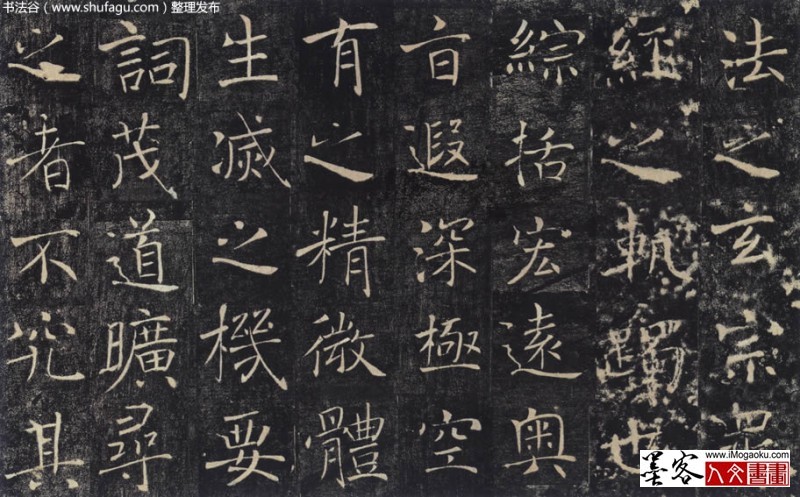 书法谷（www.shufagu.com）整理发布
法之玄宗
經之軌躅也
綜括宏遠奧
旨遐深極空
有之精微體
生滅之機要
詞茂道曠尋
之者不究其
墨客 www.iMogaoku.com
人文書畫